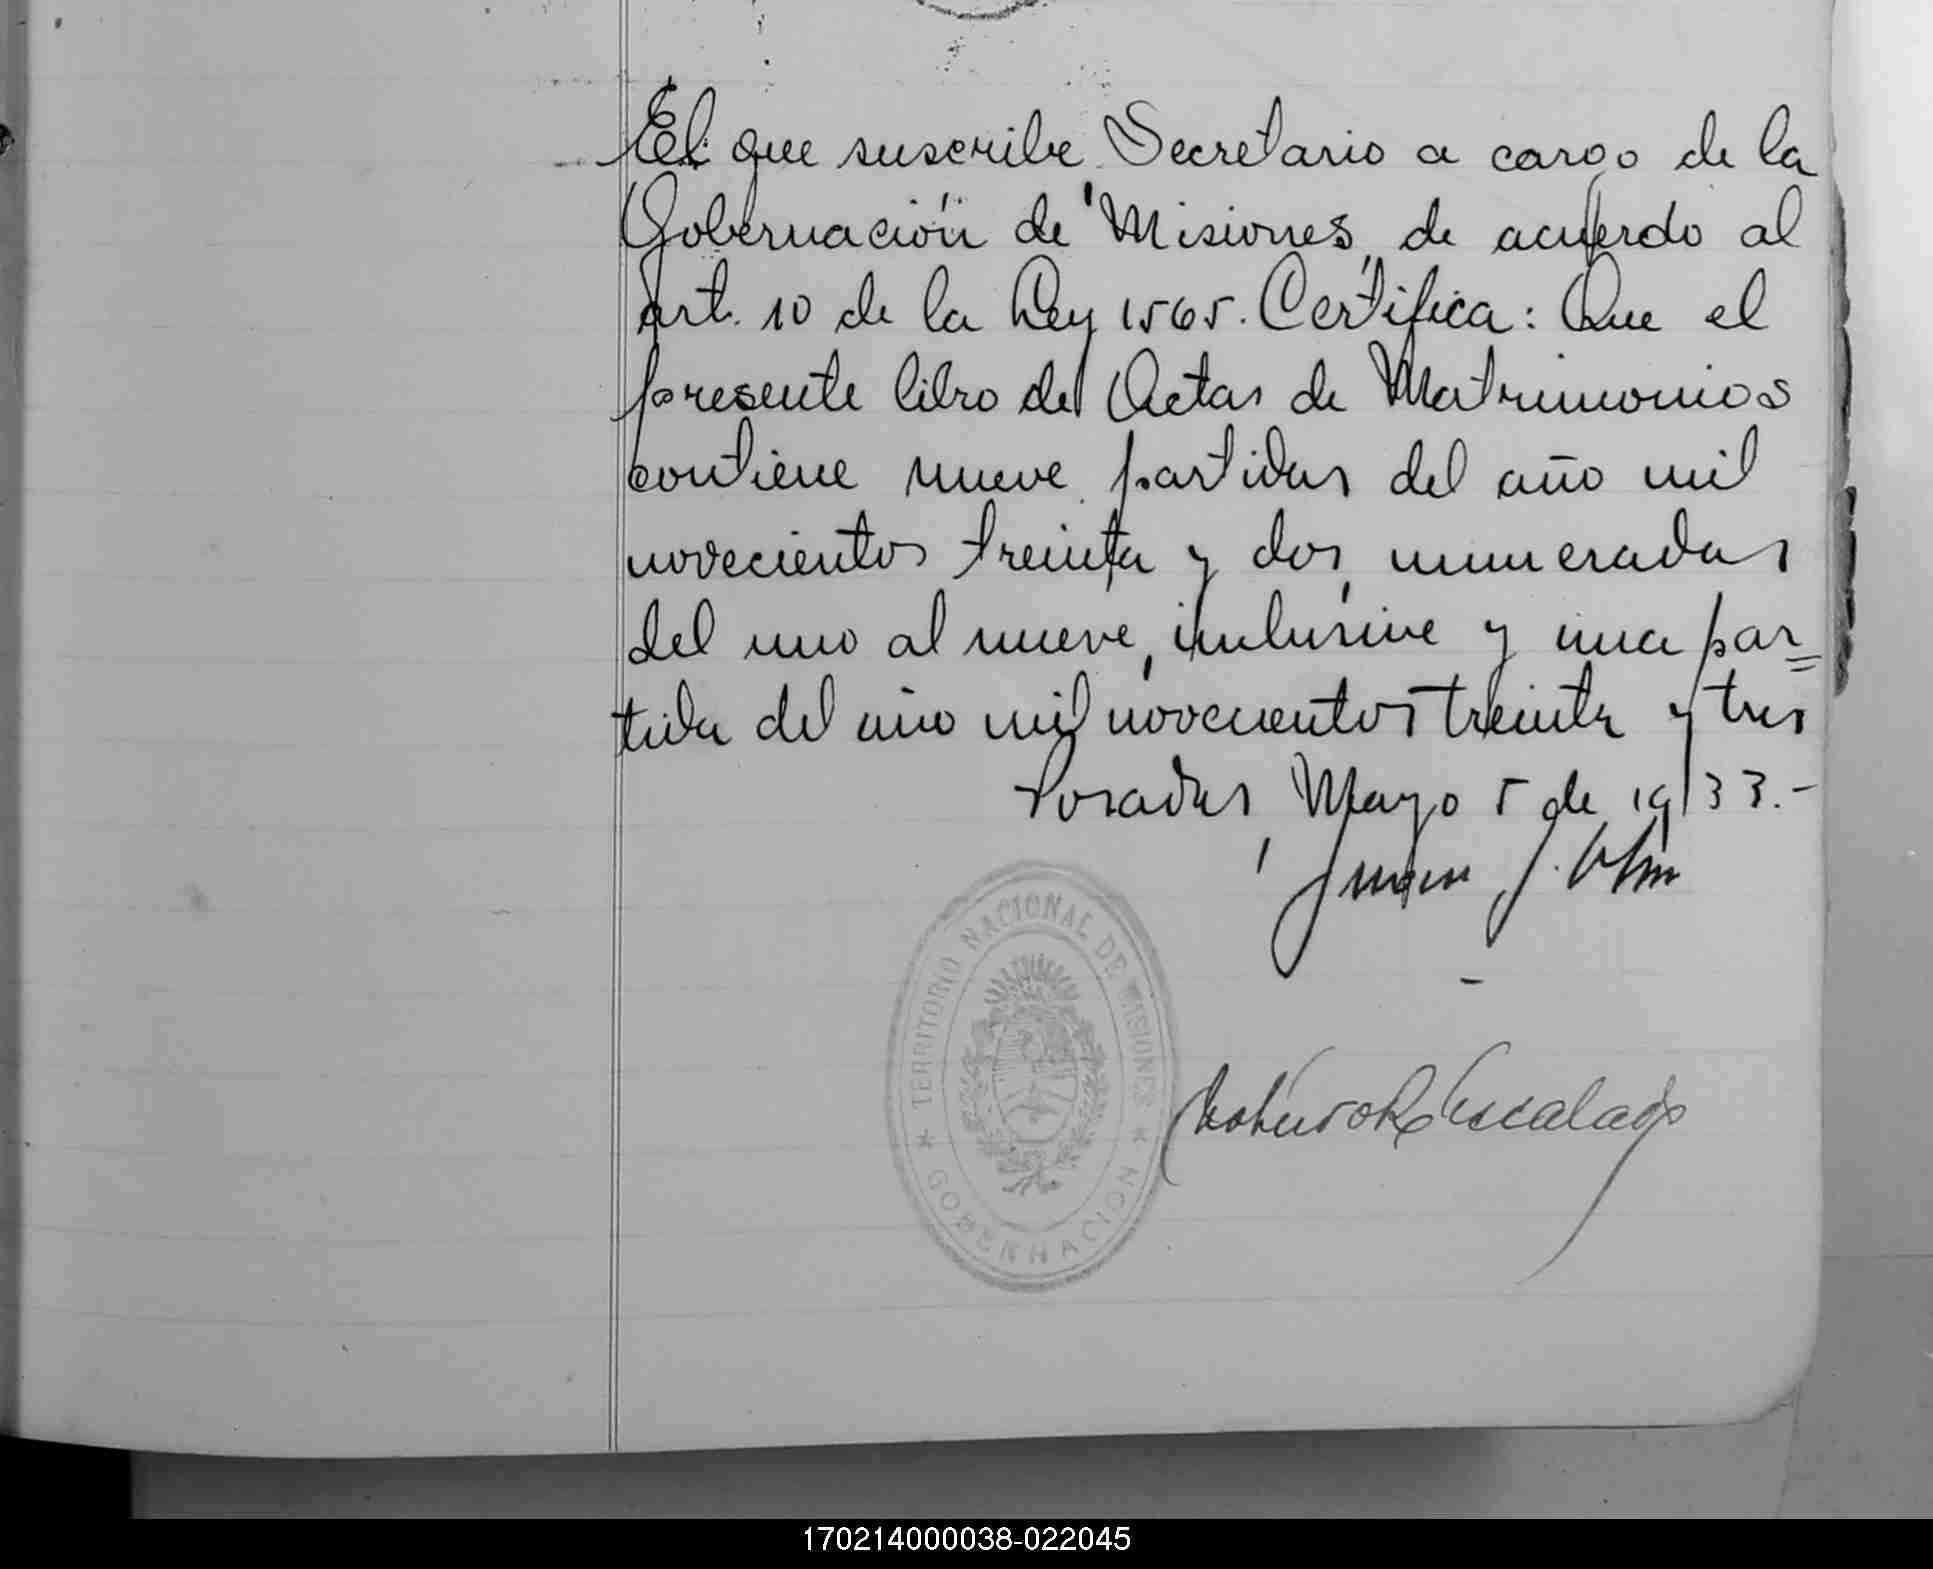 El que suscribe Secretario a cargo de la
Gobernación de Misiones, de acuerdo al
art. 10 de la Ley 1565. Certifica: Que el
presente libro de Actas de Matrimonios
contiene nueve partidas del año mil
novecientos treinta y dos, numeradas
del uno al nueve, inclusive y una par=
tida del año mil novecientos treinta y tres
Posadas, Mayo 5 de 1933.-
Juan J.
TERRITORIO NACIONAL DE MISIONES
* GOBERNACION *
170214000038-022045